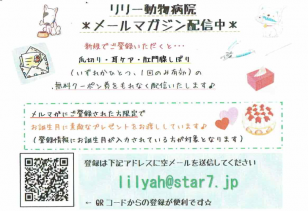 リリー動物病院
＊メールマガジン配信中＊
新規でご登録いただくと・・・
爪切り・耳ケア・肛門腺しぼり
(いずれかひとつ、1回のみ有効)の
無料クーポン券をもれなく配信いたします♪
メルマガにご登録された方限定で
お誕生月に素敵なプレゼントをお渡ししています♪
(登録情報にお誕生日が入力されている方が対象となります)
登録は下記アドレスに空メールを送信してください
lilyah@star7.jp
← QRコードからの登録が便利です☆